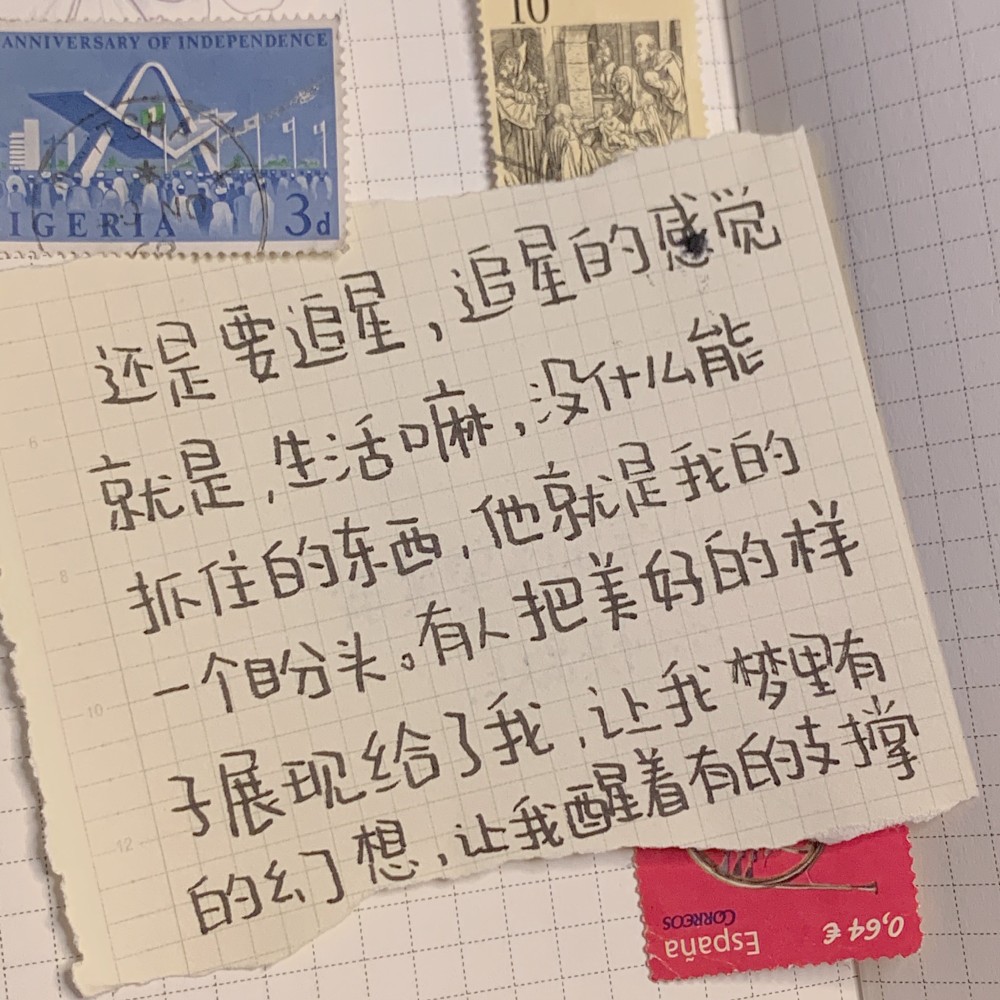 ANNIVERSARY OF INDEPENDENCE
IGERIA 3d
10
还是要追星，追星的感觉
就是，生活嘛，没什么能
抓住的东西，他就是我的
一个盼头。有人把美好的样
子展现给了我，让我梦里有
的幻想，让我醒着有的支撑
6
8
10
12
0,64 €
España
CORREOS